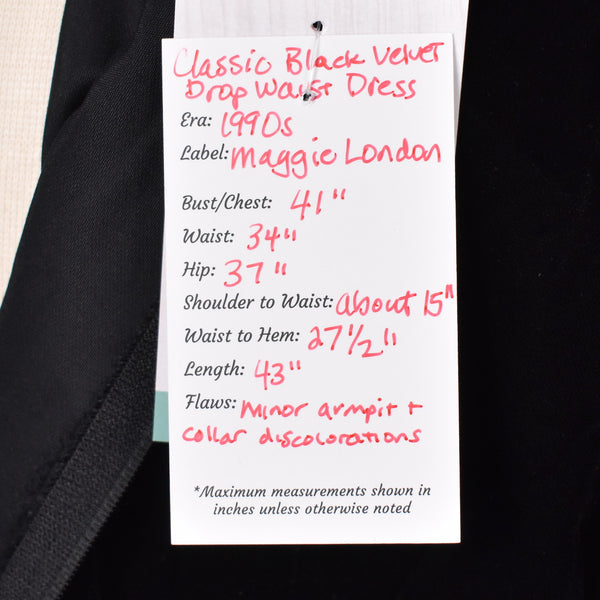 Classic Black Velvet
Drop Waist Dress
Era: 1990s
Label: Maggie London
Bust/Chest: 41"
Waist: 34"
Hip: 37"
Shoulder to Waist: About 15"
Waist to Hem: 27 1/2"
Length: 43"
Flaws: Minor armpit +
collar discolorations
*Maximum measurements shown in
inches unless otherwise noted